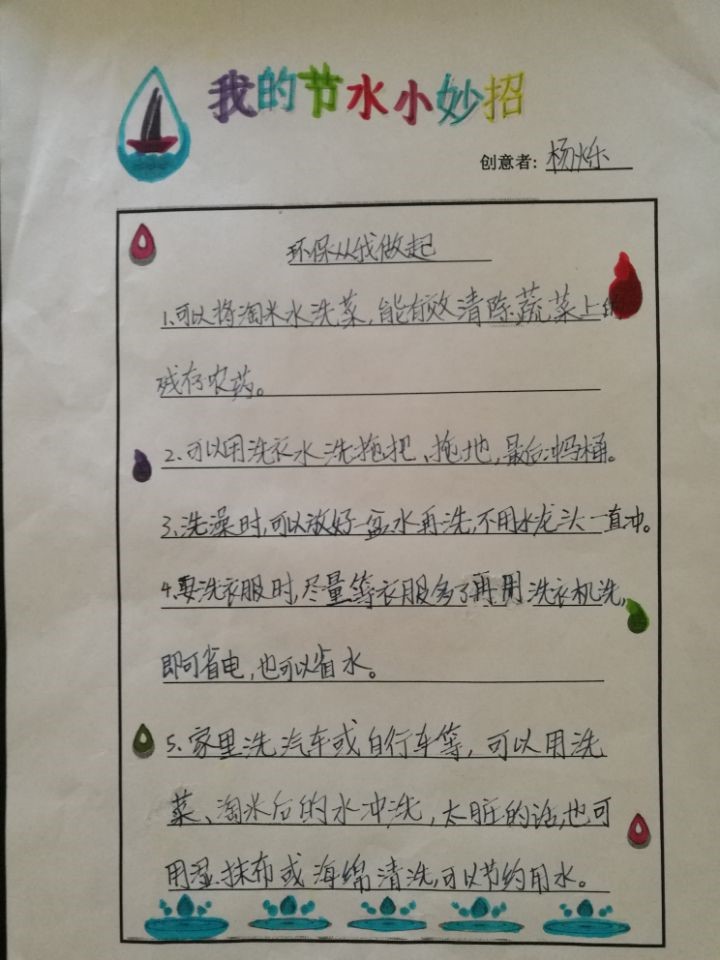 我的节水小妙招
创意者: 杨烁
环保从我做起
1.可以将淘米水洗菜,能有效清除蔬菜上的
残存农药。
2.可以用洗衣水洗拖把、拖地,最后冲马桶。
3.洗澡时,可以放好一盆水再洗,不用水龙头一直冲。
4.要洗衣服时,尽量等衣服多了再用洗衣机洗,
即可省电,也可以省水。
5.家里洗汽车或自行车等,可以用洗
菜、淘米后的水冲洗,太脏的话,也可
用湿抹布或海绵清洗,可以节约用水。